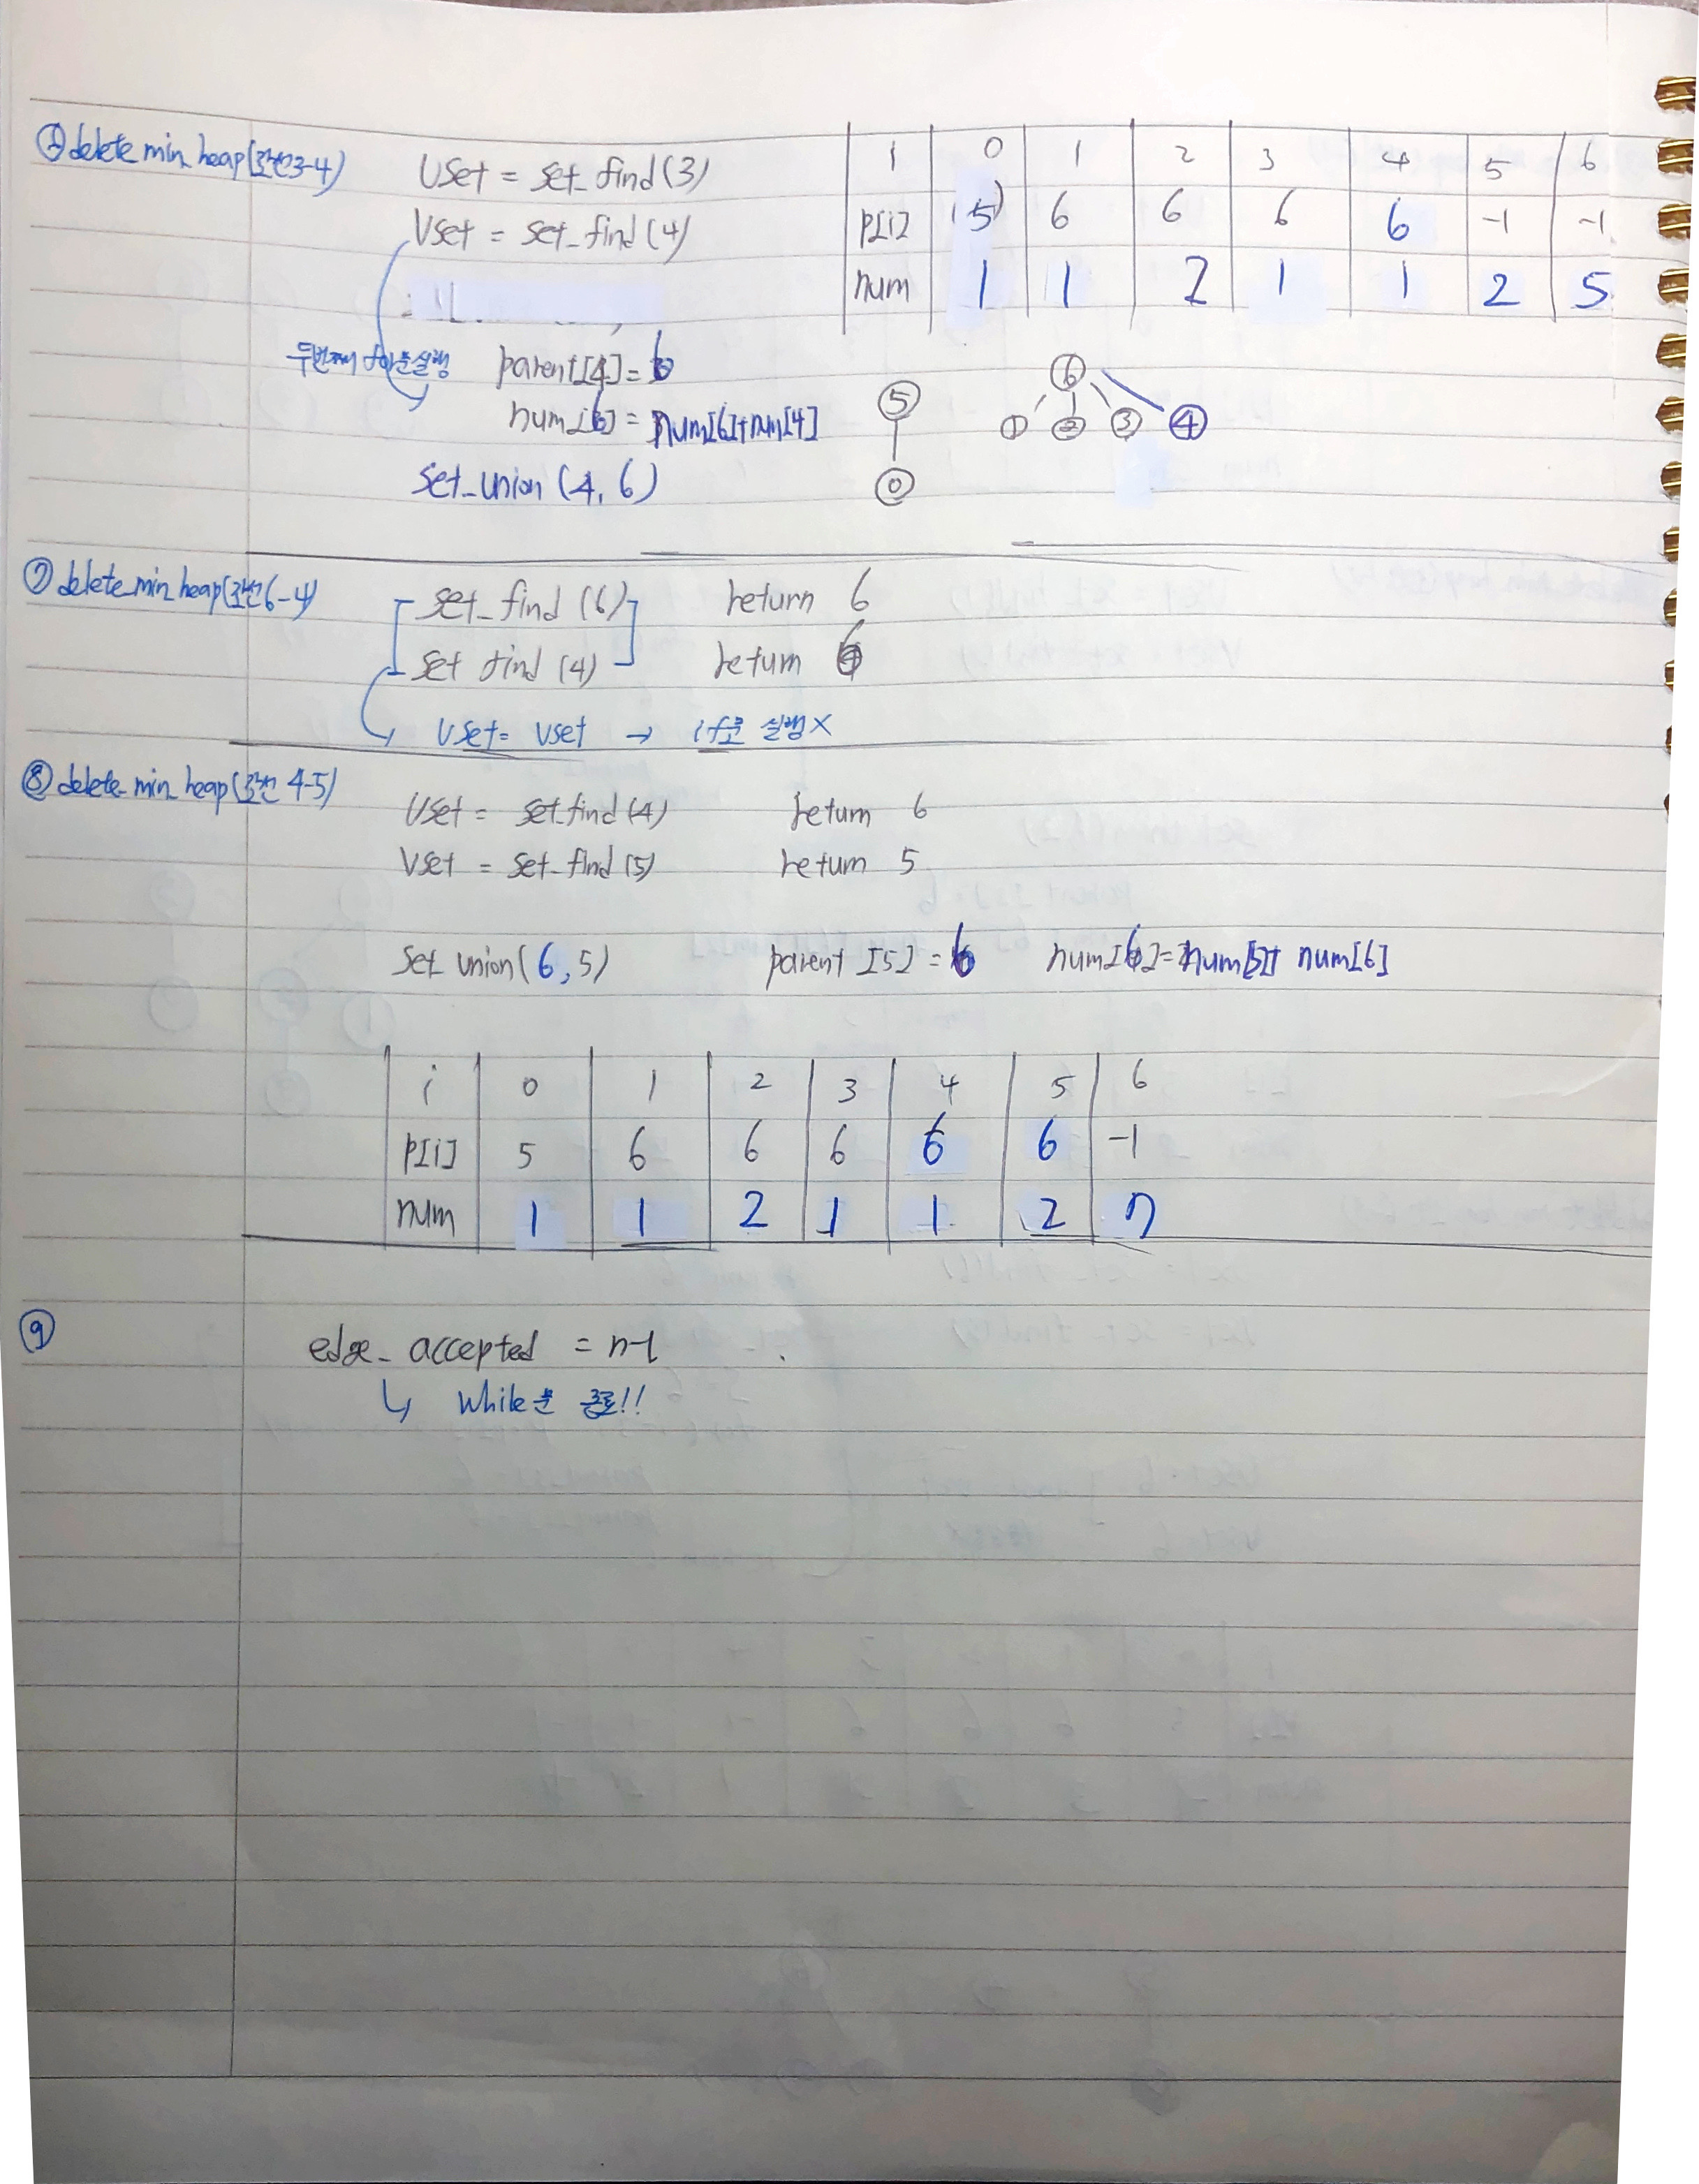 delete min heap(간선3-4)
uset = set_find(3)
vset = set_find(4)
i 0 1 2 3 4 5 6
p[i] (5) 6 6 6 6 -1 -1
num 1 1 2 1 1 2 5
두번째 실행
parent[4]=6
num[6] = num[6]+num[4]
set_union (4, 6)
⑤ ⑥
① ② ③ ④
⓪
⑦ delete min heap(간선6-4)
set_find (6) return 6
set find (4) return 6
uset= vset → if문 실행 X
⑧ delete_min_heap(간선 4-5)
uset = set_find(4) return 6
vset = set_find(5) return 5
set_union(6,5) parent [5] = 6 num[6]=num[5]+ num[6]
i 0 1 2 3 4 5 6
p[i] 5 6 6 6 6 6 -1
num 1 1 2 1 1 2 7
⑨
edge_accepted = n-1
↳ while문 종료!!